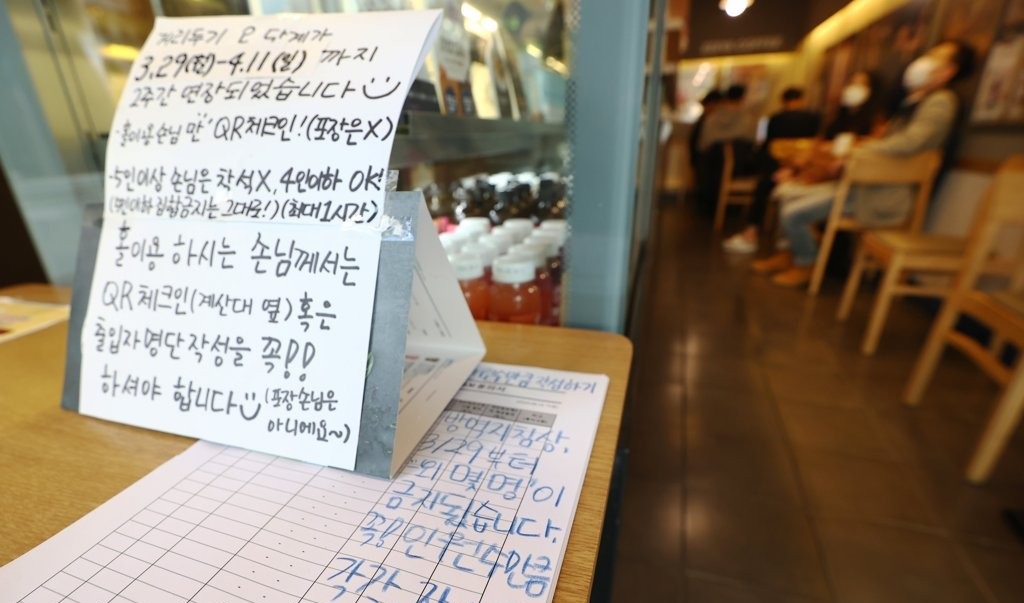 거리두기 2단계가
3.29(월)-4.11(일) 까지
2주간 연장되었습니다
"홀이용손님 만" QR체크인!(포장은X)
-5인이상 손님은 착석X, 4인이하 OK!
집합금지는 그대로!)(최대1시간)
홀이용 하시는 손님께서는
QR체크인(계산대 옆)혹은
출입자명단작성을 꼭!!
하셔야 합니다(포장손님은
아니에요~)
작성하기
방역지침상,
3/29부터
"외 몇 명"이
금지됩니다.
꼭! 인원수만큼
각각